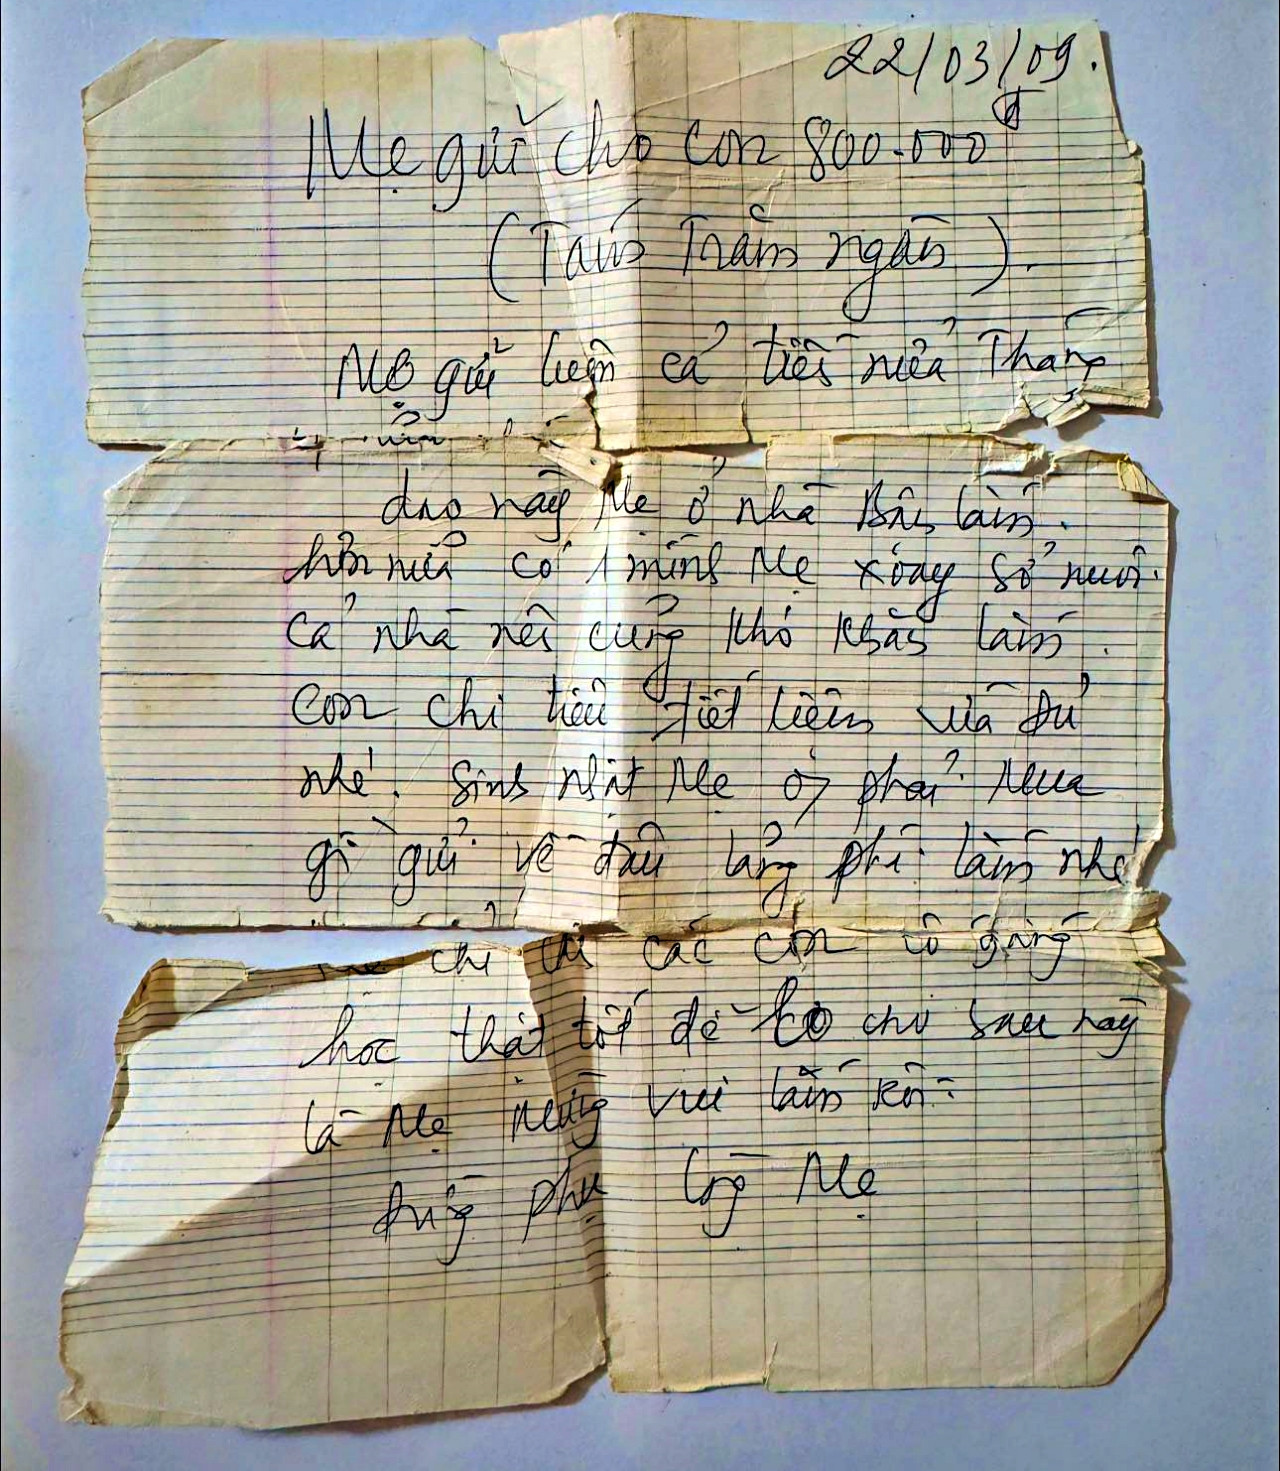 22/03/09.
Mẹ gửi cho con 800.000đ
(Tám Trăm ngàn).
Mẹ gửi luôn cả tiền nửa Tháng
4
dạo này Mẹ ở nhà lắm.
hơn nữa có 1 mình Mẹ xoay sở nuôi
cả nhà nên cũng khó khăn lắm.
Con chi tiêu tiết kiệm vừa đủ
nhé. Sinh nhật Mẹ ko phải Mua
gì gửi về đâu lãng phí lắm nhé
Mẹ chỉ các con cố gắng
học thật tốt để cho sau này
là Mẹ Mừng vui lắm rồi.
Đừng phụ lòng Mẹ